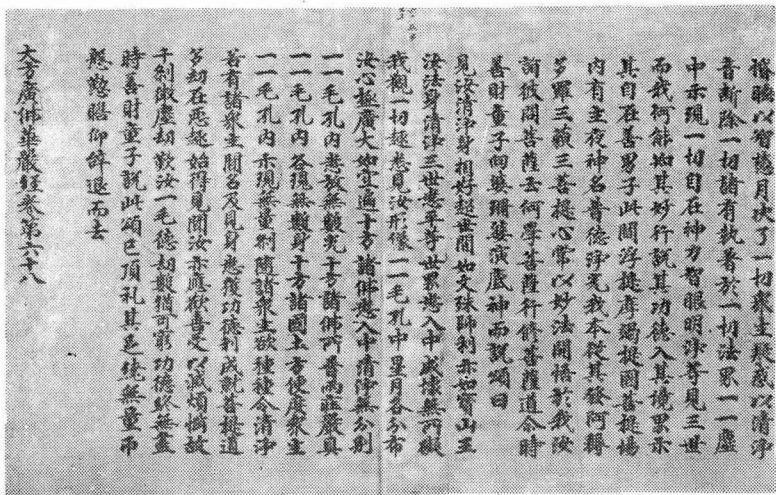 以智慧月決了一切眾生疑惑以清淨
音斷除一切諸有執著於一切法界一一塵
中示現一切自在神力智眼明淨等見三世
而我何能知其妙行說其功德入其境界示
其自在善男子此閻浮提摩竭提國菩提場
內有主夜神名普德淨光我本從其發阿耨
多羅三藐三菩提心常以妙法開悟於我汝
詣彼問菩薩云何學菩薩行修菩薩道尒時
善財童子向婆珊婆演底神而說頌曰
見汝清淨身相好超世間如文殊師利亦如寶山王
汝法身清淨三世悉平等世界悉入中成壞無所礙
我觀一切趣悉見汝形像一一毛孔中星月各分布
汝心極廣大如空遍十方諸佛悉入中清淨無分別
一一毛孔內悉放無數光十方諸佛所普雨莊嚴具
一一毛孔內各現無數身十方諸國土方便度眾生
一一毛孔內示現無量剎隨諸眾生欲種種令清淨
若有諸眾生聞名及見身悉獲功德利成就菩提道
多劫在惡趣始得見聞汝亦應歡喜受以滅煩惱故
千剎微塵劫歎汝一毛德劫數猶可窮功德終無盡
時善財童子說此頌已頂礼其足繞無量帀
慇懃瞻仰辭退而去
大方廣佛華嚴經卷第六十八